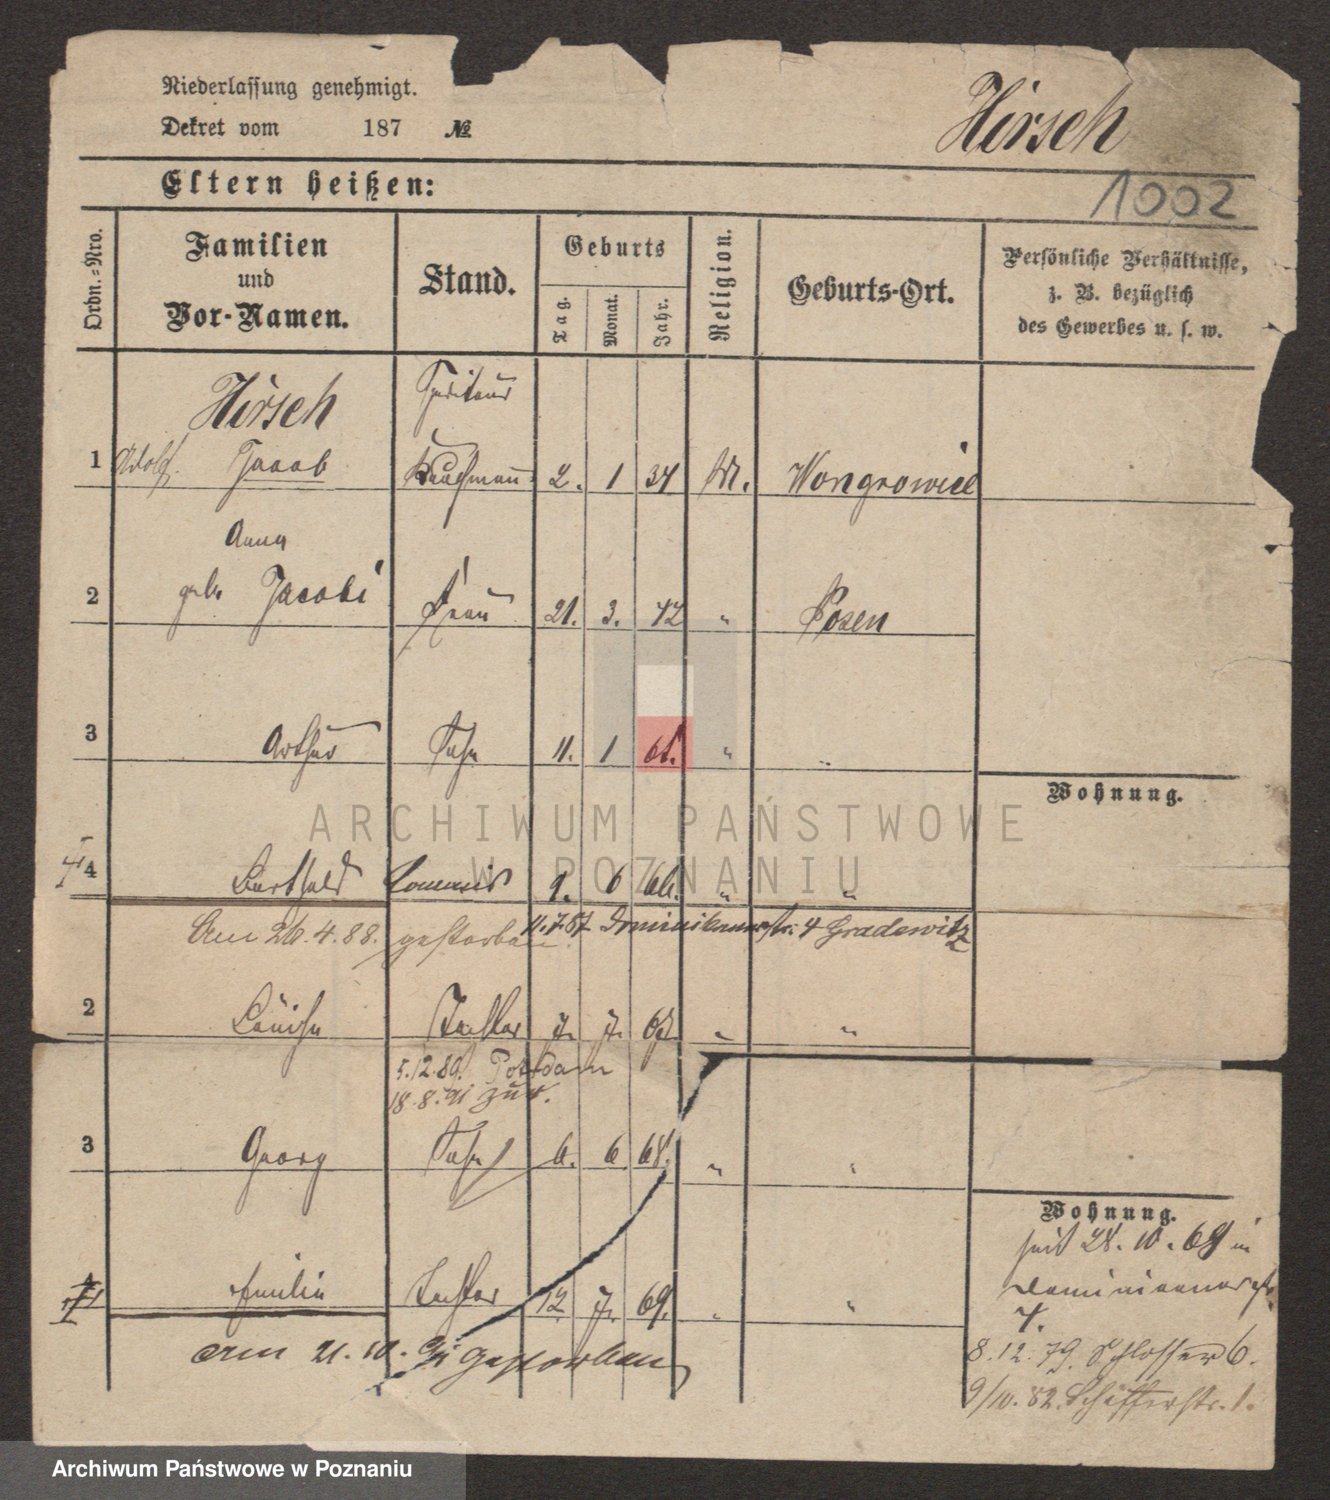 Niederlassung genehmigt.
Dekret vom 187 №
Hirsch
1002
Eltern heißen:
Ordn.-Nro.
Familien
und
Vor-Namen.
Stand.
Geburts
Tag.
Monat.
Jahr.
Religion.
Geburts-Ort.
Persönliche Verhältnisse,
z. B. bezüglich
des Gewerbes u. s. w.
Hirsch Spediteur
1 Adolf Jacob Kaufmann 2. 1 34 M. Wongrowiec
Anna
2 geb. Jacobi Frau 21. 3. 42 " Posen
3 Arthur Sohn 11. 1 65. " "
Wohnung.
4 Berthold Commis 9. 6 66. " "
Am 26.4.88. gestorben. 11.7.87 Dominikanerstr. 4 Gradewitz
2 Louise Tochter 7. 7. 67 " "
5.12.89. Potsdam
18.8.91 zur.
3 Georg Sohn 6. 6 68. " "
Wohnung.
seit 28.10.69 in
Dominicanerstr.
4.
4 Emilie Tochter 12 7. 69. " "
am 21.10. gestorben
8.12.79. Schlosser 6.
9/10.82. Schifferstr. 1.
ARCHIWUM PAŃSTWOWE
W POZNANIU
Archiwum Państwowe w Poznaniu